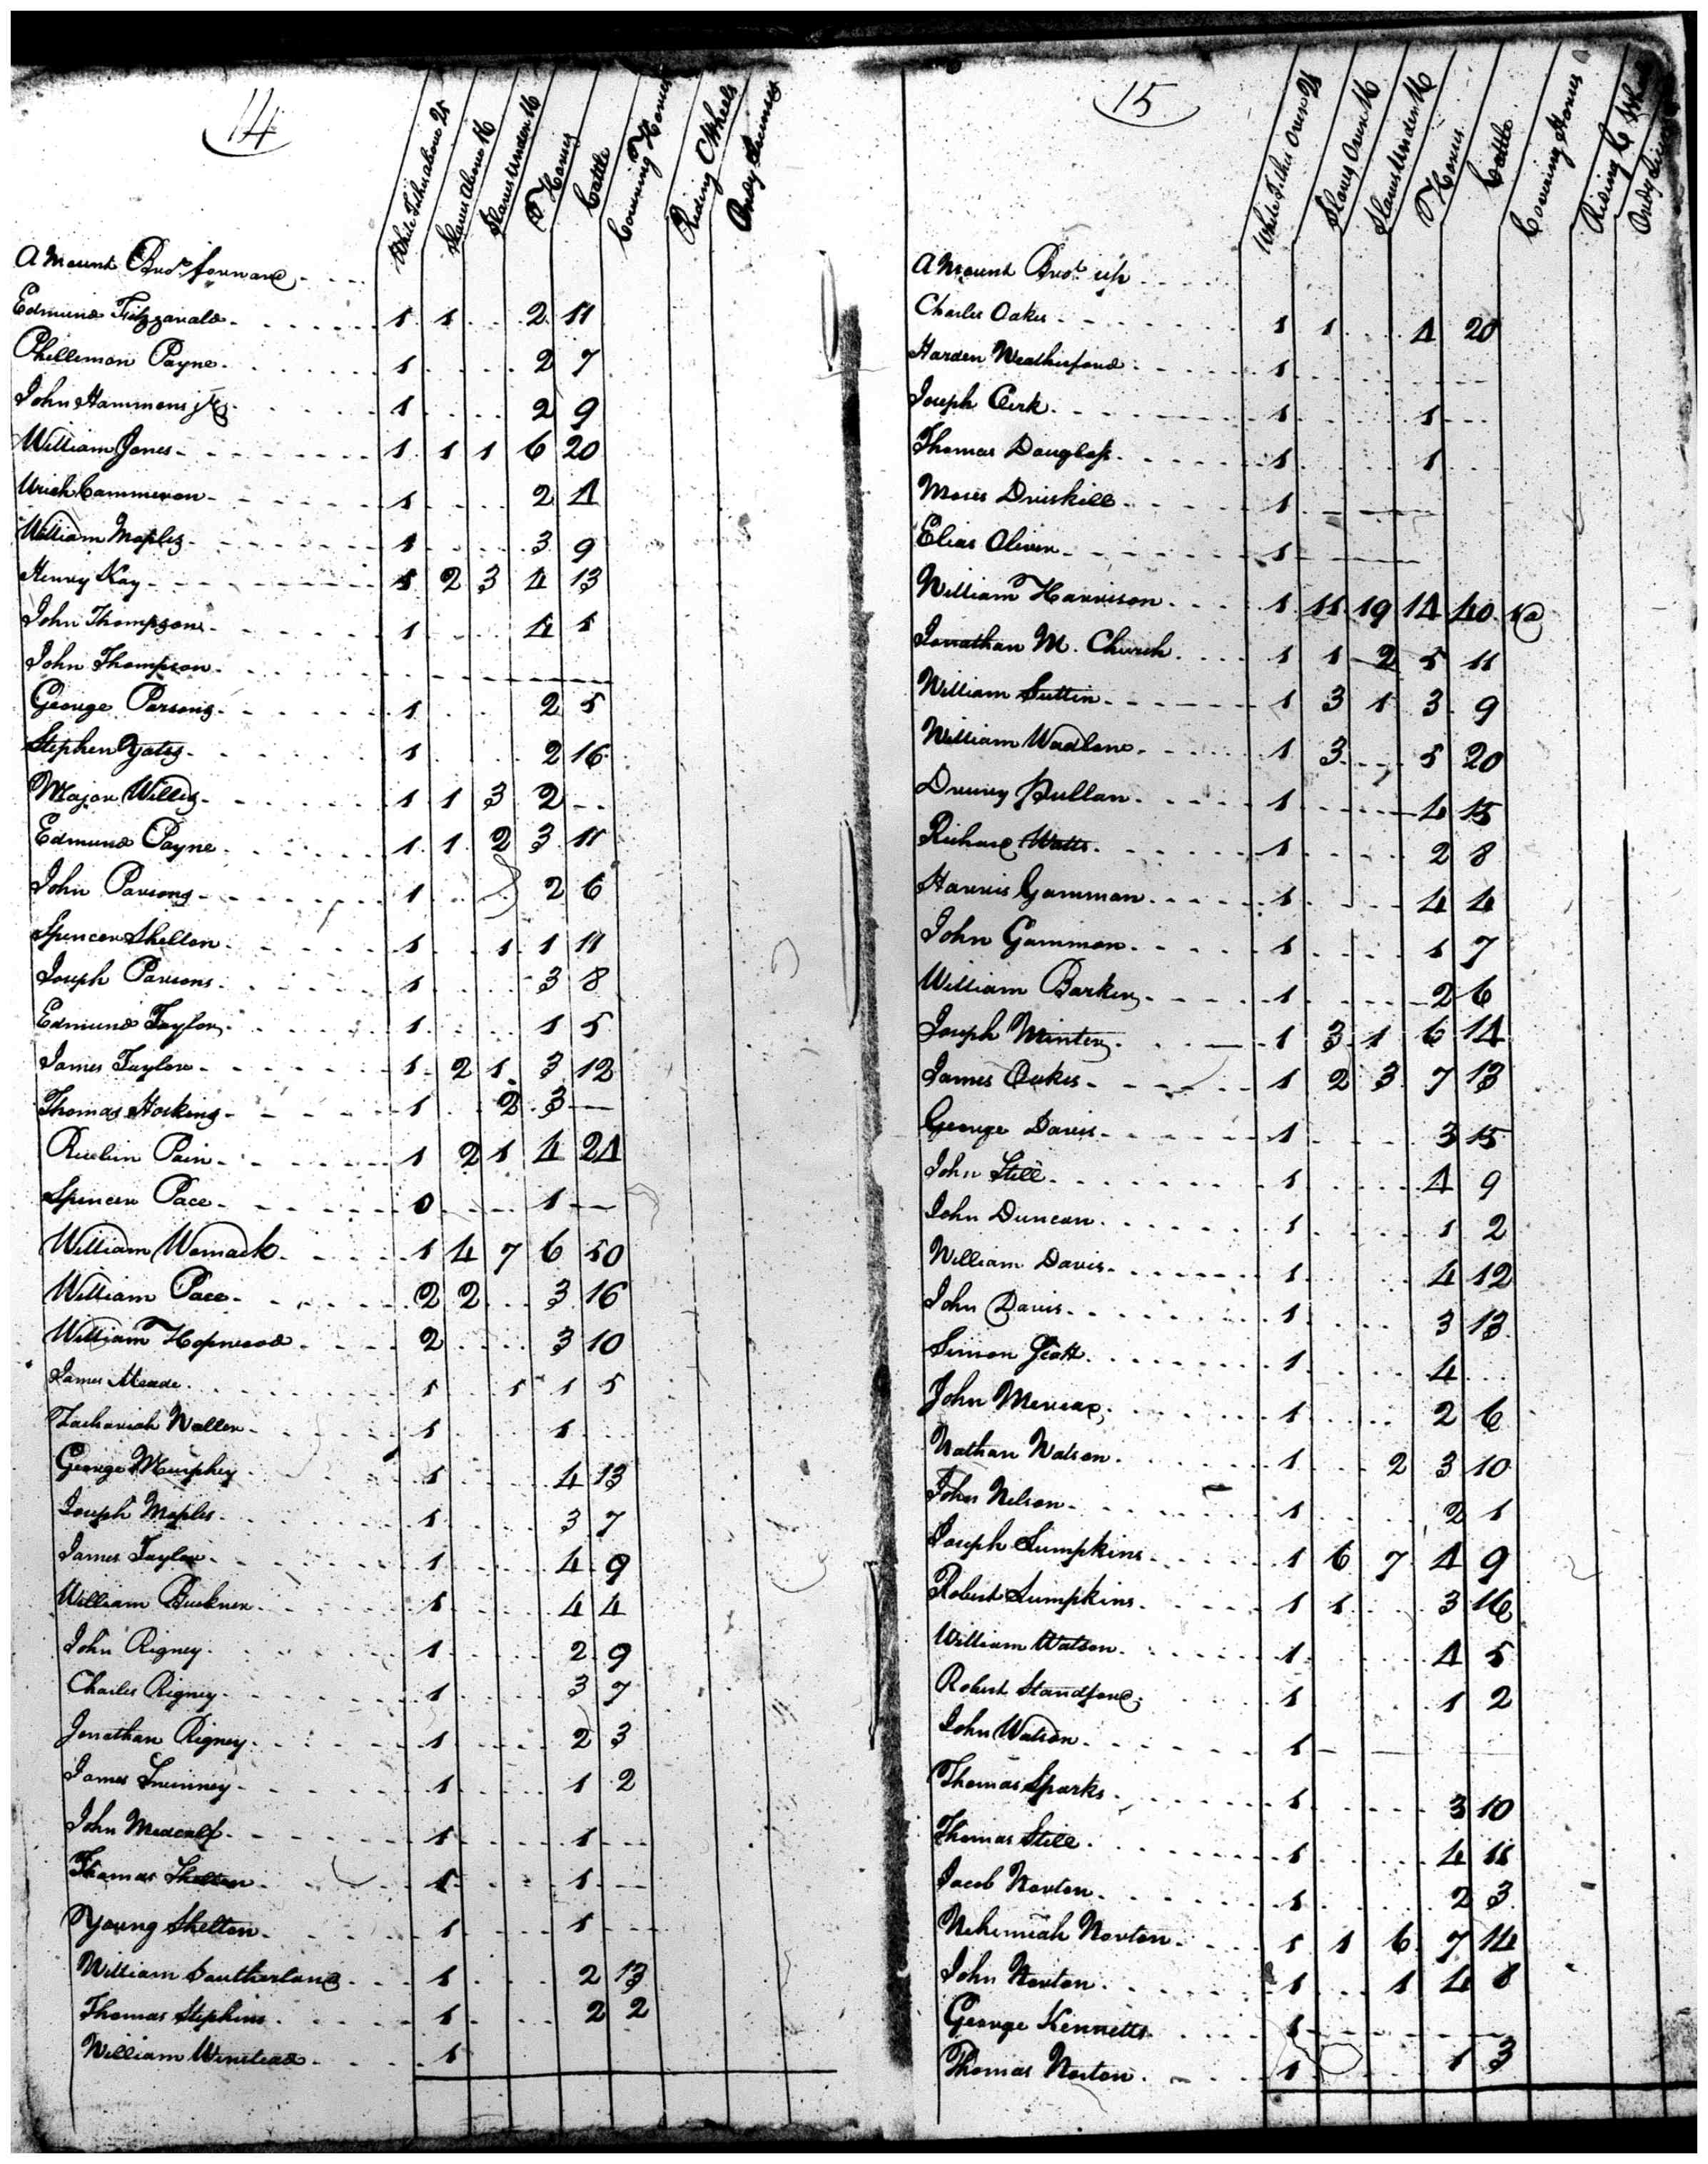 14
White Tithes above 21
Slaves Above 16
Slaves Under 16
Horses
Cattle
Covering Horses
Riding Wheels
Ordy Licenses
Amount Brot. forward
Edmund Fitzgarald 1 1 2 11
Phillemon Payne 1 2 7
John Hammons jr 1 2 9
William Jones 1 1 1 6 20
Uriah Cammeron 1 2 4
William Maples 1 3 9
Henry Kay 1 2 3 4 13
John Thompson 1 4 5
John Thompson
George Parsons 1 2 5
Stephen Yates 1 2 16
Major Willis 1 1 3 2
Edmund Payne 1 1 2 3 11
John Parsons 1 2 6
Spencer Shelton 1 1 1 11
Joseph Parsons 1 3 8
Edmund Taylor 1 1 5
James Taylor 1 2 1 3 12
Thomas Hoskins 1 2 3
Reubin Pain 1 2 1 4 24
Spencer Pace 0 1
William Womack 1 4 7 6 50
William Pace 2 2 3 16
William Hopwood 2 3 10
James Meade 1 1 1 5
Zachariah Waller 1 1
George Murphey 1 4 13
Joseph Maples 1 3 7
James Taylor 1 4 9
William Buckner 1 4 4
John Rigney 1 2 9
Charles Rigney 1 3 7
Jonathan Rigney 1 2 3
James 1 1 2
John Medcalf 1 1
Thomas Shelton 1 1
Young Shelton 1 1
William Southerland 1 2 13
Thomas Stephens 1 2 2
William Winstead 1
15
White Tithes Over 21
Slaves Over 16
Slaves Under 16
Horses
Cattle
Covering Horses
Riding C Wheels
Amount Brot. up
Charles Oakes 1 1 4 20
Harden Weatherford 1
Joseph Cerk 1 1
Thomas Douglass 1 1
Moses Driskill 1
Elias Oliver 1
William Harrison 1 11 19 14 40
Jonathan M. Church 1 1 2 5 11
William Suttin 1 3 1 3 9
William Wadlow 1 3 5 20
Drury Pullan 1 4 15
Richard Watts 1 2 8
Harris Gammon 1 4 4
John Gammon 1 1 7
William Barker 1 2 6
Joseph Minter 1 3 1 6 14
James Oakes 1 2 3 7 13
George Davis 1 3 15
John Still 1 4 9
John Duncan 1 1 2
William Davis 1 4 12
John Davis 1 3 13
Simon Scott 1 4
John 1 2 6
Nathan Watson 1 2 3 10
John Nelson 1 2 1
Joseph Lumpkins 1 6 7 4 9
Robert Lumpkins 1 1 3 16
William Watson 1 4 5
Robert Standford 1 1 2
John Watson 1
Thomas Sparks 1 3 10
Thomas Still 1 4 11
Jacob Norton 1 2 3
Nehemiah Norton 1 1 6 7 14
John Norton 1 1 4 8
George Kennetts 1
Thomas Norton 1 1 3